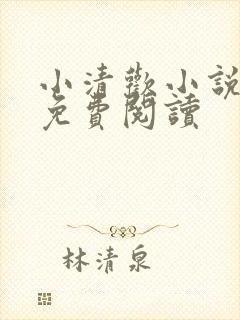 小清歡小說
免費閱讀
林清泉